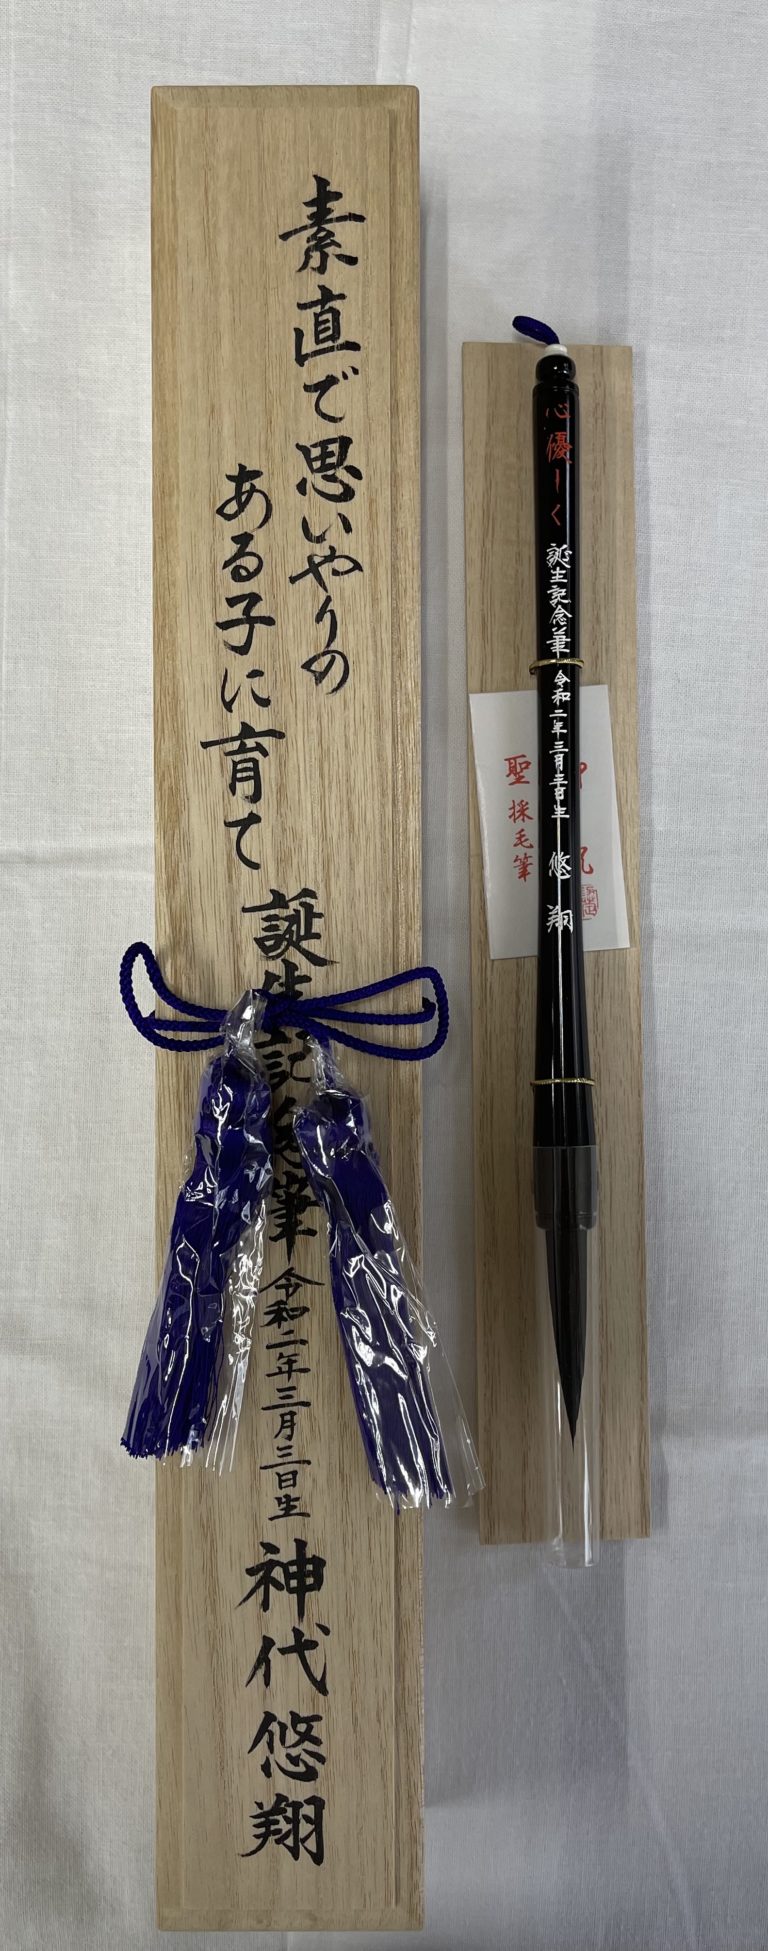 素直で思いやりの
ある子に育て
誕生記念筆
令和二年三月三日生
神代悠翔
心優しく
誕生記念筆
令和二年三月三日生
悠翔
聖採毛筆